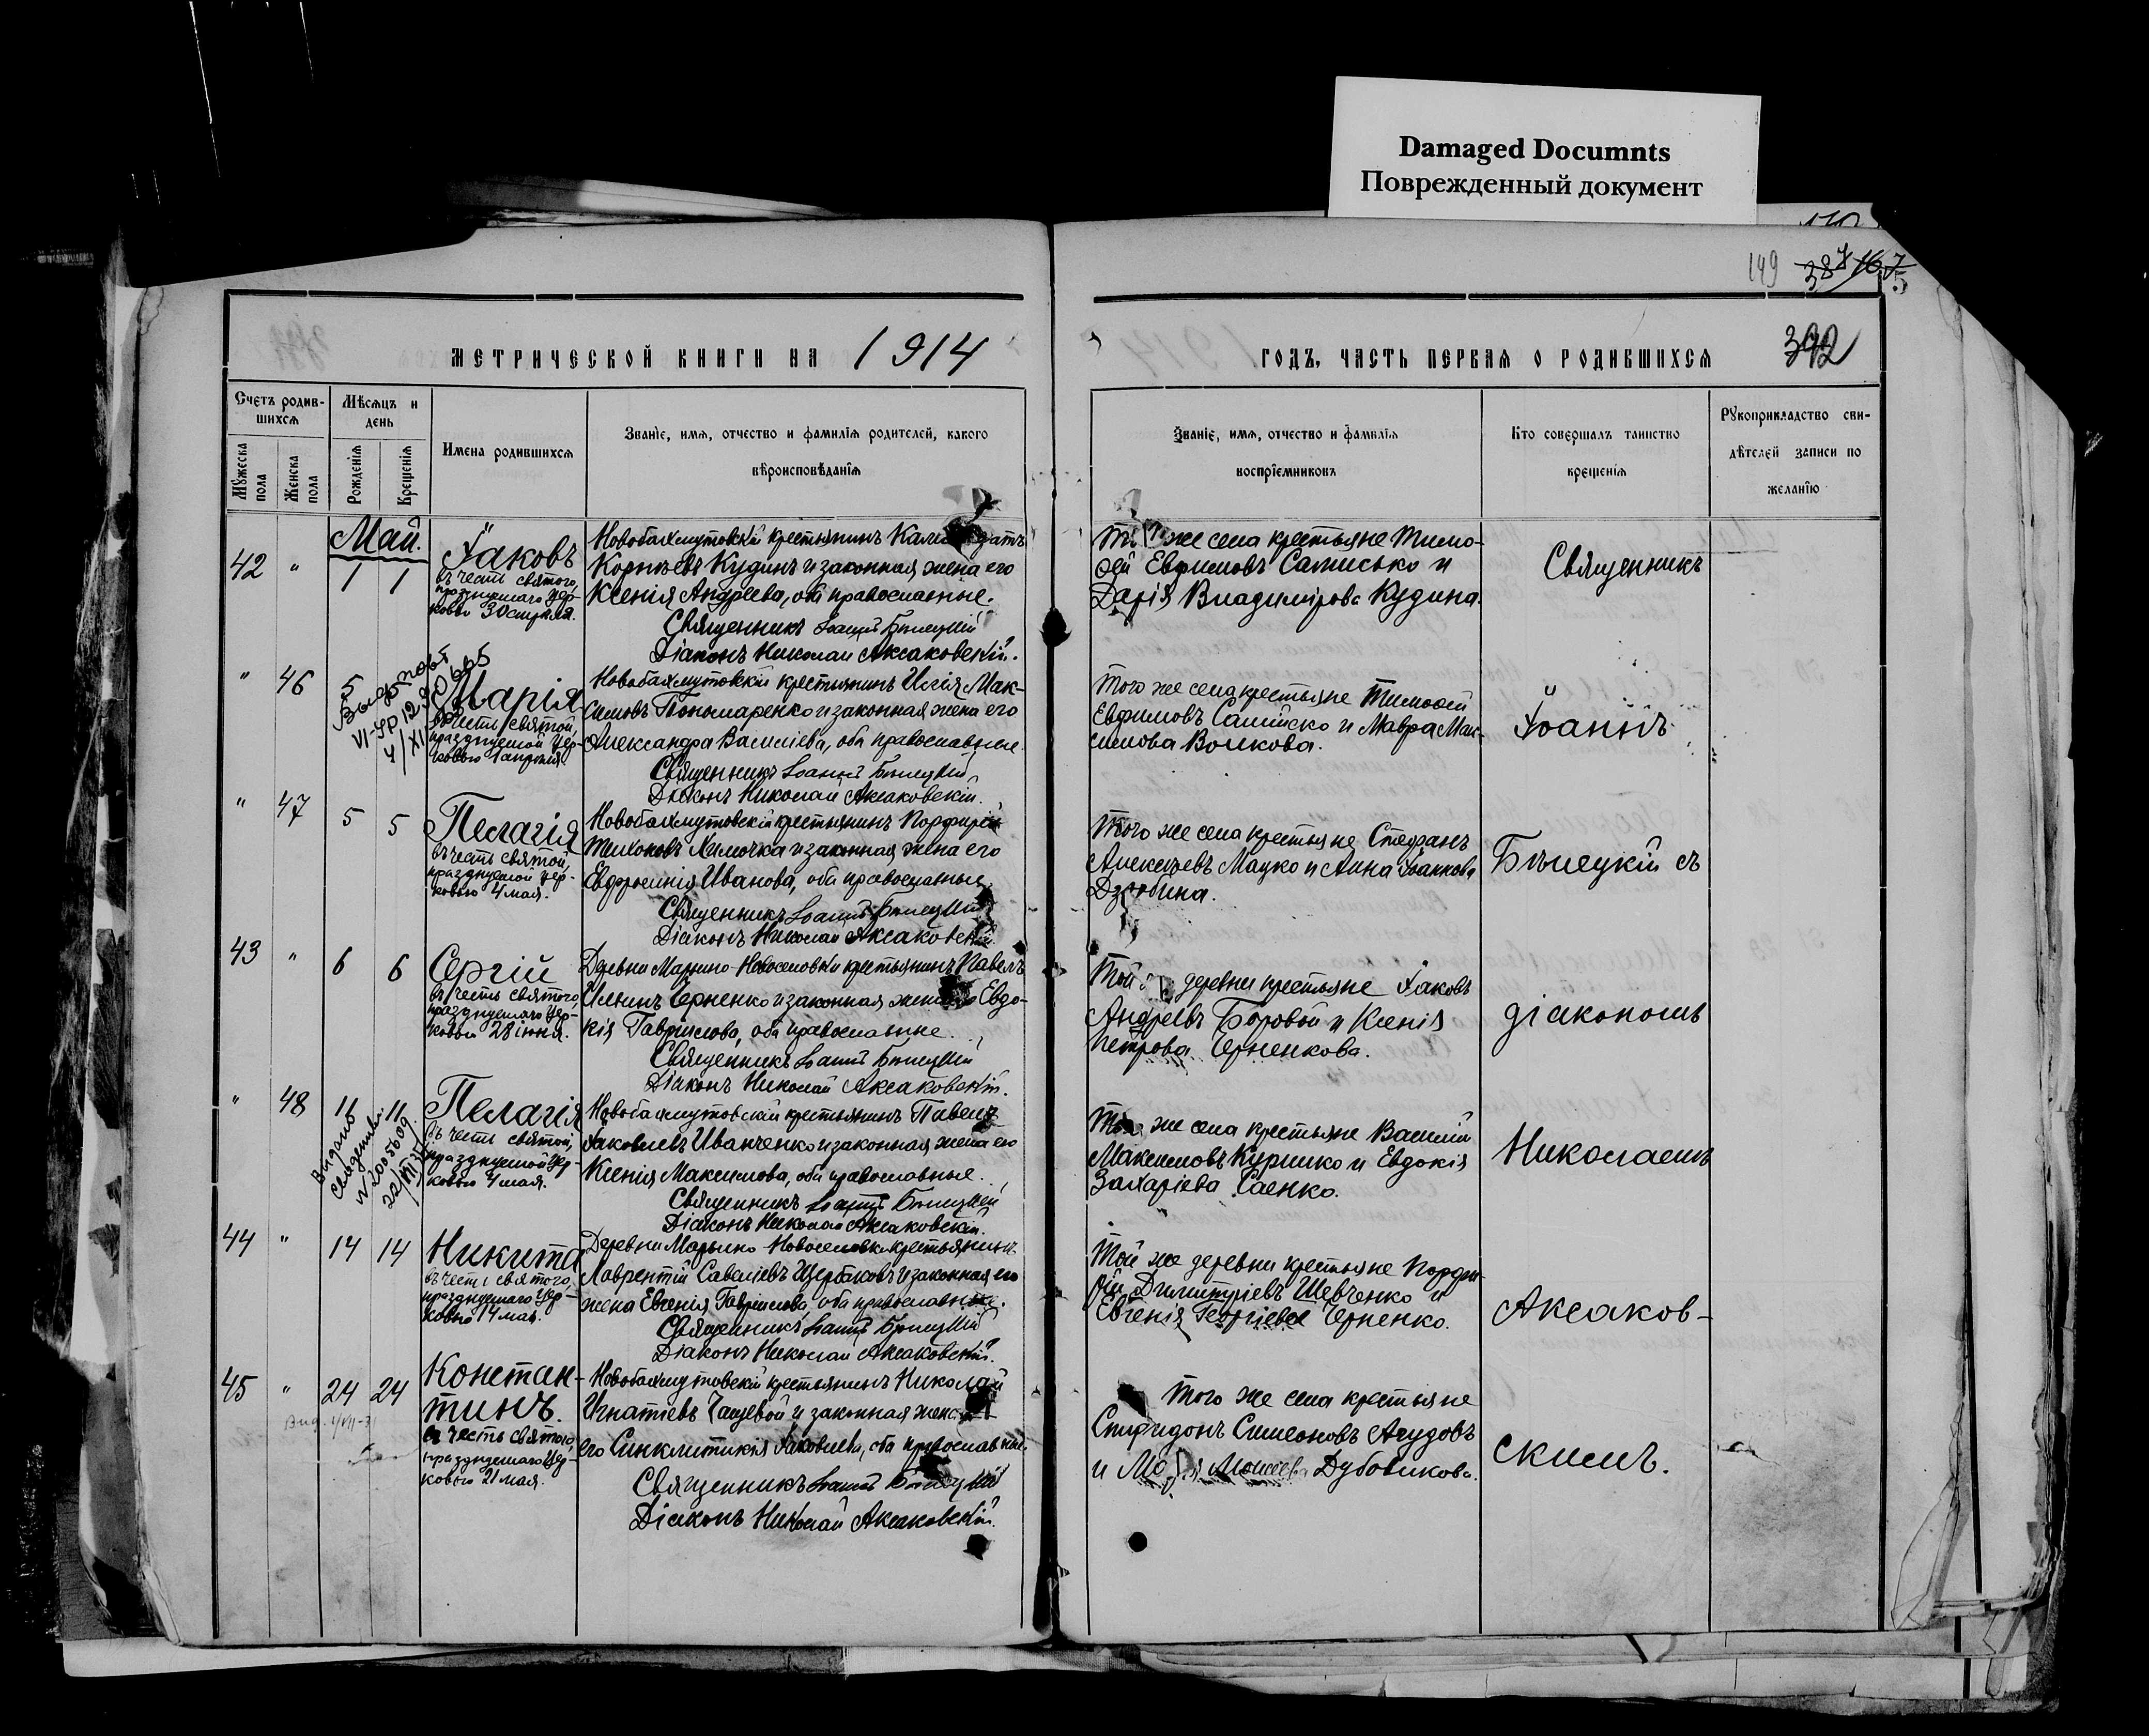 Damaged Documnts
Поврежденный документ
149
392
МЕТРИЧЕСКОЙ КНИГИ НА 1914
ГОДЪ, ЧАСТЬ ПЕРВАЯ О РОДИВШИХСЯ
Счетъ родив-
шихся
Мѣсяцъ и
день
Мужеска
пола
Женска
пола
Рожденія
Крещенія
Имена родившихся
Званіе, имя, отчество и фамилія родителей, какого
вѣроисповѣданія
Званіе, имя, отчество и фамилія
воспріемниковъ
Кто совершалъ таинство
крещенія
Рукоприкладство сви-
дѣтелей записи по
желанію
Май.
42 " 1 1
Іаковъ
въ честь святого,
празднуемаго цер-
ковью 30 апрѣля.
Новобахмутовскій крестьянинъ
Корнѣевъ Кудинъ и законная жена его
Ксенія Андреева, оба православные.
Священникъ Іоаннъ Бѣлецкій
Діаконъ Николай Аксаковскій.
же села крестьяне Тимо-
ѳей Евфимовъ Самисько и
Дарія Владимірова Кудина.
Священникъ
" 46 5
Марія
въ честь святой,
празднуемой цер-
ковью 1 апрѣля
Новобахмутовскій крестьянинъ Илія Мак-
симовъ Пономаренко и законная жена его
Александра Василіева, оба православные.
Священникъ Іоаннъ Бѣлецкій
Діаконъ Николай Аксаковскій.
Того же села крестьяне Тимоѳей
Евфимовъ и Мавра Мак-
симова Волкова.
Іоаннъ
" 47 5 5
Пелагія
въ честь святой,
празднуемой цер-
ковью 4 мая.
Новобахмутовскій крестьянинъ Порфирій
Тихоновъ Химочка и законная жена его
Евфросинія Иванова, оба православные.
Священникъ Іоаннъ Бѣлецкій
Діаконъ Николай Аксаковскій.
Того же села крестьяне Стефанъ
Алексѣевъ Мацко и Анна Іоаннова
Бѣлецкій съ
43 " 6 6
Сергій
въ честь святого,
празднуемаго цер-
ковью 28 іюня.
Деревни Марьино-Новоселовки крестьянинъ Павелъ
Черненко и законная жена Евдо-
кія Гавріилова, оба православные.
Священникъ Іоаннъ Бѣлецкій
Діаконъ Николай Аксаковскій.
Той деревни крестьяне Іаковъ
Андреевъ Боровой и Ксенія
Петрова Черненкова.
діакономъ
" 48 11 11
Выдано
22/VII
Пелагія
въ честь святой,
празднуемой цер-
ковью 4 мая.
Новобахмутовскій крестьянинъ Павелъ
Іаковлевъ Иванченко и законная жена его
Ксенія Максимова, оба православные.
Священникъ Іоаннъ Бѣлецкій
Діаконъ Николай Аксаковскій.
же села крестьяне Василій
Максимовъ и Евдокія
Захаріева Саенко.
Николаемъ
44 " 14 14
Никита
въ честь святого,
празднуемаго цер-
ковью 14 мая.
Деревни Марьино-Новоселовки крестьянинъ
Лаврентій Савеліевъ Щербаковъ и законная его
жена Евгенія Гавріилова, оба православные.
Священникъ Іоаннъ Бѣлецкій
Діаконъ Николай Аксаковскій.
Той же деревни крестьяне Порфи-
рій Димитріевъ Шевченко и
Евгенія Георгіева Черненко.
Аксаков-
45 " 24 24
Констан-
тинъ.
въ честь святого,
празднуемаго цер-
ковью 21 мая.
Новобахмутовскій крестьянинъ Николай
Игнатіевъ и законная жена
его Синклитикія Іаковлева, оба православные.
Священникъ Іоаннъ Бѣлецкій
Діаконъ Николай Аксаковскій.
Того же села крестьяне
Спиридонъ Симеоновъ
и Моисеева Дубовикова.
скимъ.